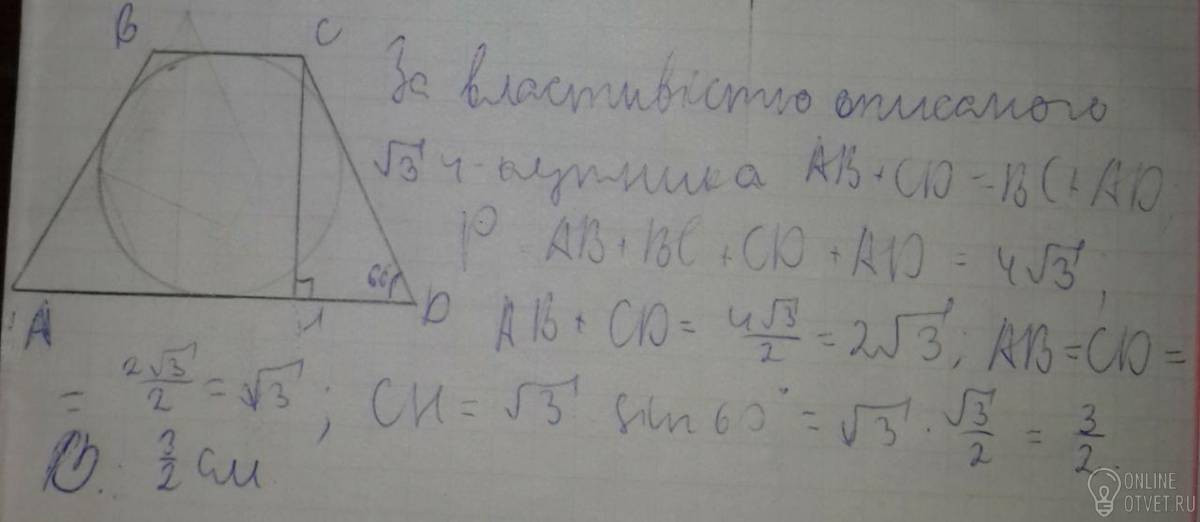 B C
За властивістю описаного
√3 4-кутника AB + CD = BC + AD
P = AB + BC + CD + AD = 4√3;
60°
A H D
AB + CD = 4√3/2 = 2√3; AB = CD =
= 2√3/2 = √3; CH = √3 sin 60° = √3 · √3/2 = 3/2.
3/2 см
ONLINE
OTVET.RU